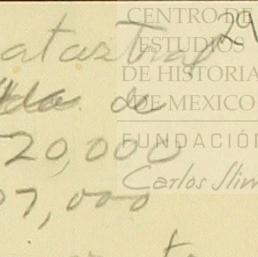 29
catastral
de
20,000
07,000
CENTRO DE
ESTUDIOS
DE HISTORIA
DE MEXICO
FUNDACIÓN
Carlos Slim